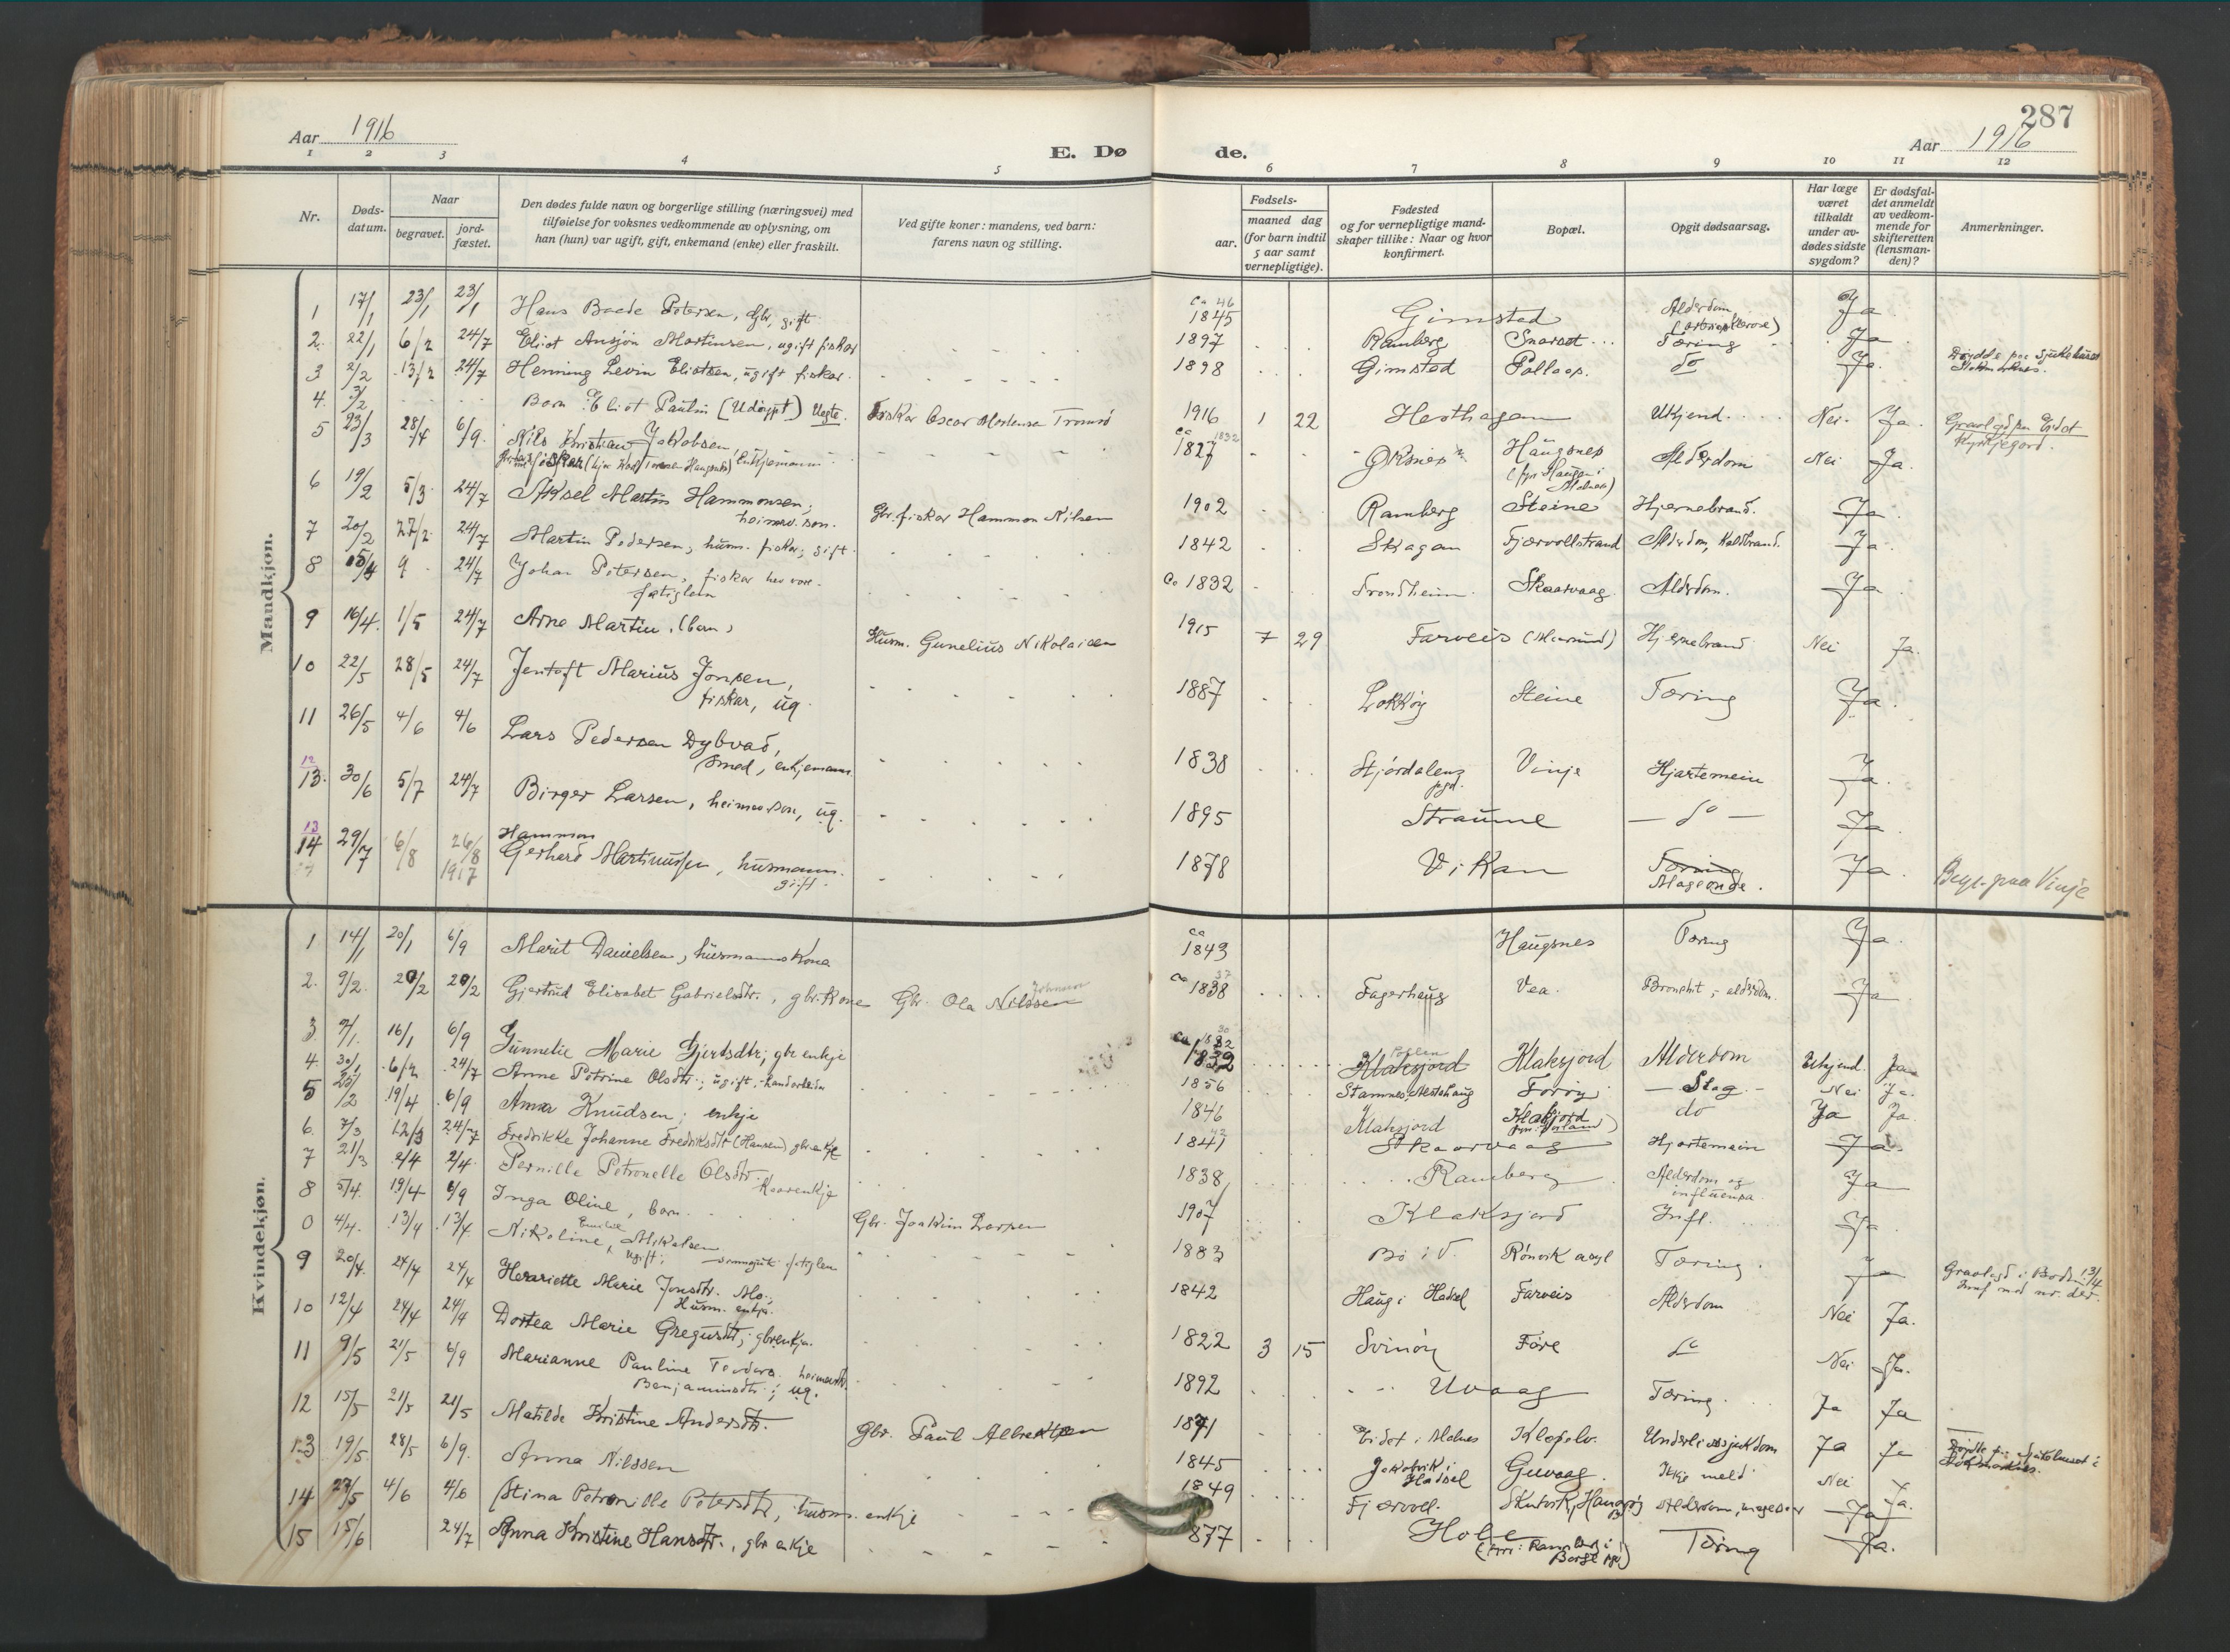 Aar 1916
E. Dø
de.
287
Aar 1916
1 2 3 4 5 6 7 8 9 10 11 12
Nr.
Døds-
datum.
Naar
begravet.
jord-
fæstet.
Den dødes fulde navn og borgerlige stilling (næringsvei) med
tilføielse for voksnes vedkommende av oplysning, om
han (hun) var ugift, gift, enkemand (enke) eller fraskilt.
Ved gifte koner: mandens, ved barn:
farens navn og stilling.
Fødsels-
aar.
maaned dag
(for barn indtil
5 aar samt
vernepligtige).
Fødested
og for vernepligtige mand-
skaper tillike: Naar og hvor
konfirmert.
Bopæl.
Opgit dødsaarsag.
Har læge
været
tilkaldt
under av-
dødes sidste
sygdom?
Er dødsfal-
det anmeldt
av vedkom-
mende for
skifteretten
(lensman-
den)?
Anmerkninger.
Mandkjøn.
1 17/1 23/1 23/1 Hans Baade Petersen, Gbr, gift ca 46 1845 Gimstad Alderdom Ja
2. 22/1 6/2 24/7 Eliot Ansjön Martinsen, ugift fiskar 1897 Ramberg Snarset Tæring Ja
3 2/2 13/2 24/7 Henning Levin Eliotsen, ugift fiskar. 1898 Gimstad Pollop. do Ja. Döydde paa Sjukehuset
Stokmarknes.
4. 3/2 Barn Eliot Paulin (Udöypt) Uegte. Fiskar Oscar Mortensen Tromsö 1916 1 22 Hesthagan Ukjend. Nei. Ja. Gravlagd paa Eidet
Kyrkjegard.
5 23/3 28/4 6/9. Nils Kristian Jakobsen, ca 1827 1832 Øksnes Haugsnes Alderdom Nei Ja.
fiskar Enkjemann
6 19/2 5/3 24/7 Aksel Martin Hammonsen, Gbr. fiskar Hammon Nilsen 1902 Ramberg Steine Hjernebrand. Ja
heimev. son.
7 20/2 27/2 24/7 Martin Pedersen, husm. fiskar; gift 1842 Skagan Fjærvollstrand Alderdom, Koldbrand. Ja
8 15/4 9 24/7 Johan Petersen, fiskar hev vore Ca 1832 Trondheim Skaarvaag Alderdom. Ja
fatiglem
9 16/4. 1/5 24/7 Arne Martin. (barn) Husm. Gunelius Nikolaisen 1915 7 29 Farveis Hjernebrand Nei Ja.
10 22/5 28/5 24/7 Jentoft Marius Jonsen, 1887 Lokköy Steine Tæring Ja
fiskar, ug.
11 26/5 4/6 4/6 Lars Pedersen Dybvad, 1838 Stjördalens Vinje Hjartemein Ja
Smed, enkjemann. pgd.
12
13. 30/6 5/7 24/7 Birger Larsen, heimev. son, ug. 1895 Straume — do — Ja
13
14 29/7 6/8 26/8 1917 Hammon
Gerhard Martinussen, husmann. 1878 Vikan Tæring Ja Begr. paa Vinje
gift. Mageonde.
Kvindekjøn.
1 14/1 20/1 6/9 Marit Danielsen, husmannskona ca 1843 Haugsnes Tæring Ja
2. 9/2. 20/2 20/2 Gjertrud Elisabet Gabrielsdtr., gbr. Kone Gbr. Ola Nilssen Johnsen ca 1838 37 Fagerhaug Vea. Bronchit, alderdom. Ja
3 7/1. 16/1 6/9 Gunnelie Marie Gjertsdtr; gbr enkje Ca 1832 Klaksjord Klaksjord Alderdom Ukjend. Ja
4. 30/1 6/2 24/7 Anne Petrine Olsdtr.; ugift; handarbeid 1856 Stamnes, Alstahaug Foröy — Slag. — Nei Ja.
5 25/2 19/4 6/9 Anna Knudsen; enkje 1846 Klaksjord Klaksjord do Ja Ja
6. 7/3 12/3 24/7 Fredrikke Johanne Fredriksdtr (Hansen) gbr enkje 1841 42 Skaarvaag Hjartemein Ja.
7 21/3 2/4 2/4. Pernille Petronelle Olsdtr. 1838 Ramberg Alderdom og Ja
Kaarenkje influensa.
8 5/4. 19/4 6/9 Inga Oline, barn. Gbr. Joakim Larsen 1907 Klaksjord Infl. Ja
0 4/4. 13/4 13/4 Nikoline Emilie Mikalsen 1883 Bö i V. Rönvik asyl Tæring. Ja Gravlagd i Bodin 13/4
ugift; sinnssjuk fatiglem
9 20/4. 24/4 24/4 Henriette Marie Jonsdtr. Mo., 1842 Haug i Hadsel Farveis Alderdom Nei Ja.
Husm. enkje.
10 12/4 24/4 24/4 Dortea Marie Gregusdtr; gbr enkje. 1822 3 15 Svinöy Före do Nei Ja.
11 9/5 21/5 6/9 Marianne Pauline Teodora heimev. 1892 Uvaag Tæring. Ja Ja
Benjaminsdtr; ug.
12 15/5 21/5 21/5 Matilde Kristine Andersdtr. Gbr. Paul Albrektsen 1871 Eidet i Malnes Klopelv. Underlivssjukdom Ja Ja Döydde
13 19/5. 28/5 6/9. Anna Nilssen 1845 Jakobvik i Guvaag Ikkje meld Nei Ja.
Hadsel
14 23/5 4/6 4/6 Stina Petronille Petersdtr, husm. enkje 1849 Fjærvoll. Skutvik, Hamaröy Alderdom, Ja
15 15/6 24/7 Anna Kristine Hansdtr., gbr enkje 877 Hole Tæring Ja.